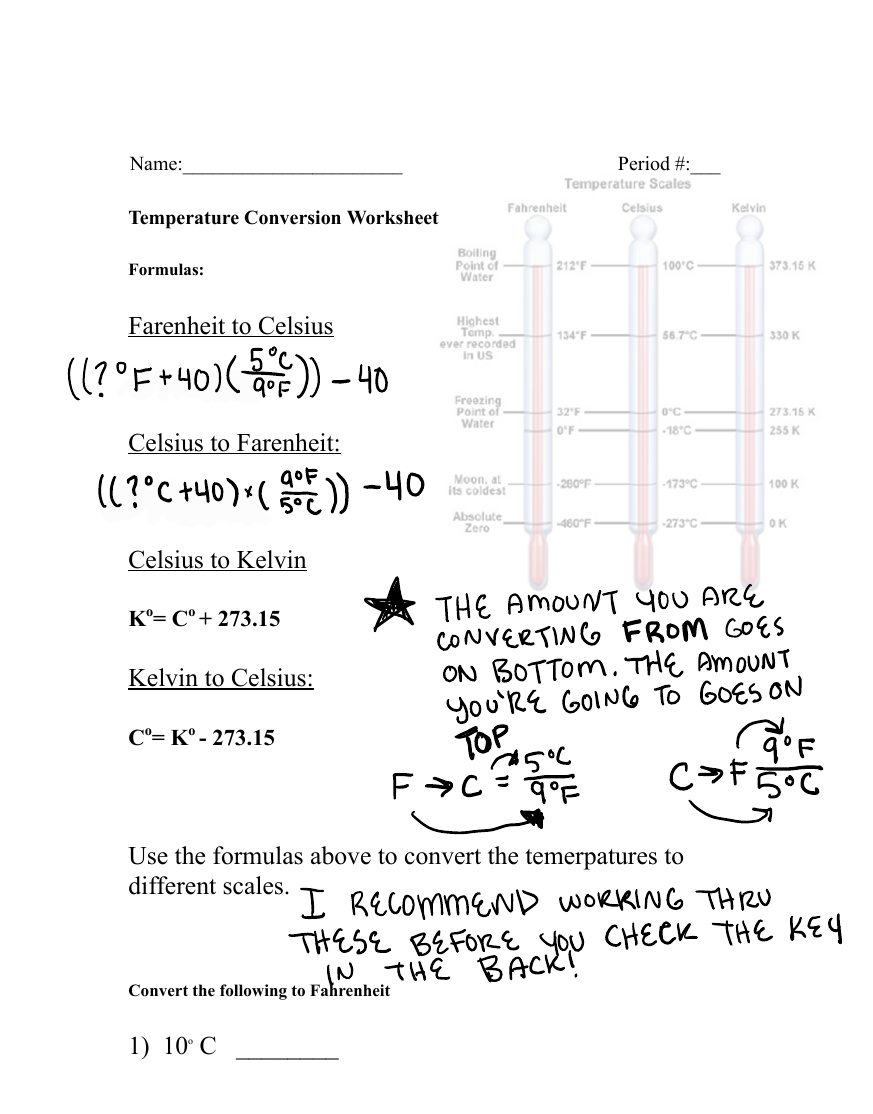 Name:______________________ Period #:___
Temperature Scales
Fahrenheit Celsius Kelvin
Temperature Conversion Worksheet
Boiling
Point of
Water
212°F 100°C 373.15 K
Formulas:
Highest
Temp.
ever recorded
in US
134°F 56.7°C 330 K
Farenheit to Celsius
((?°F+40)(5°C/9°F)) – 40
Freezing
Point of
Water
32°F 0°C 273.15 K
0°F -18°C 255 K
Celsius to Farenheit:
((?°C+40)×(9°F/5°C)) – 40
Moon, at
its coldest
-280°F -173°C 100 K
Absolute
Zero
-460°F -273°C 0 K
Celsius to Kelvin
K°= C° + 273.15
Kelvin to Celsius:
C°= K° - 273.15
★ THE AMOUNT YOU ARE
CONVERTING FROM GOES
ON BOTTOM. THE AMOUNT
YOU'RE GOING TO GOES ON
TOP
F → C = 5°C/9°F
C → F 9°F/5°C
Use the formulas above to convert the temerpatures to
different scales.
I RECOMMEND WORKING THRU
THESE BEFORE YOU CHECK THE KEY
IN THE BACK!
Convert the following to Fahrenheit
1) 10° C ________